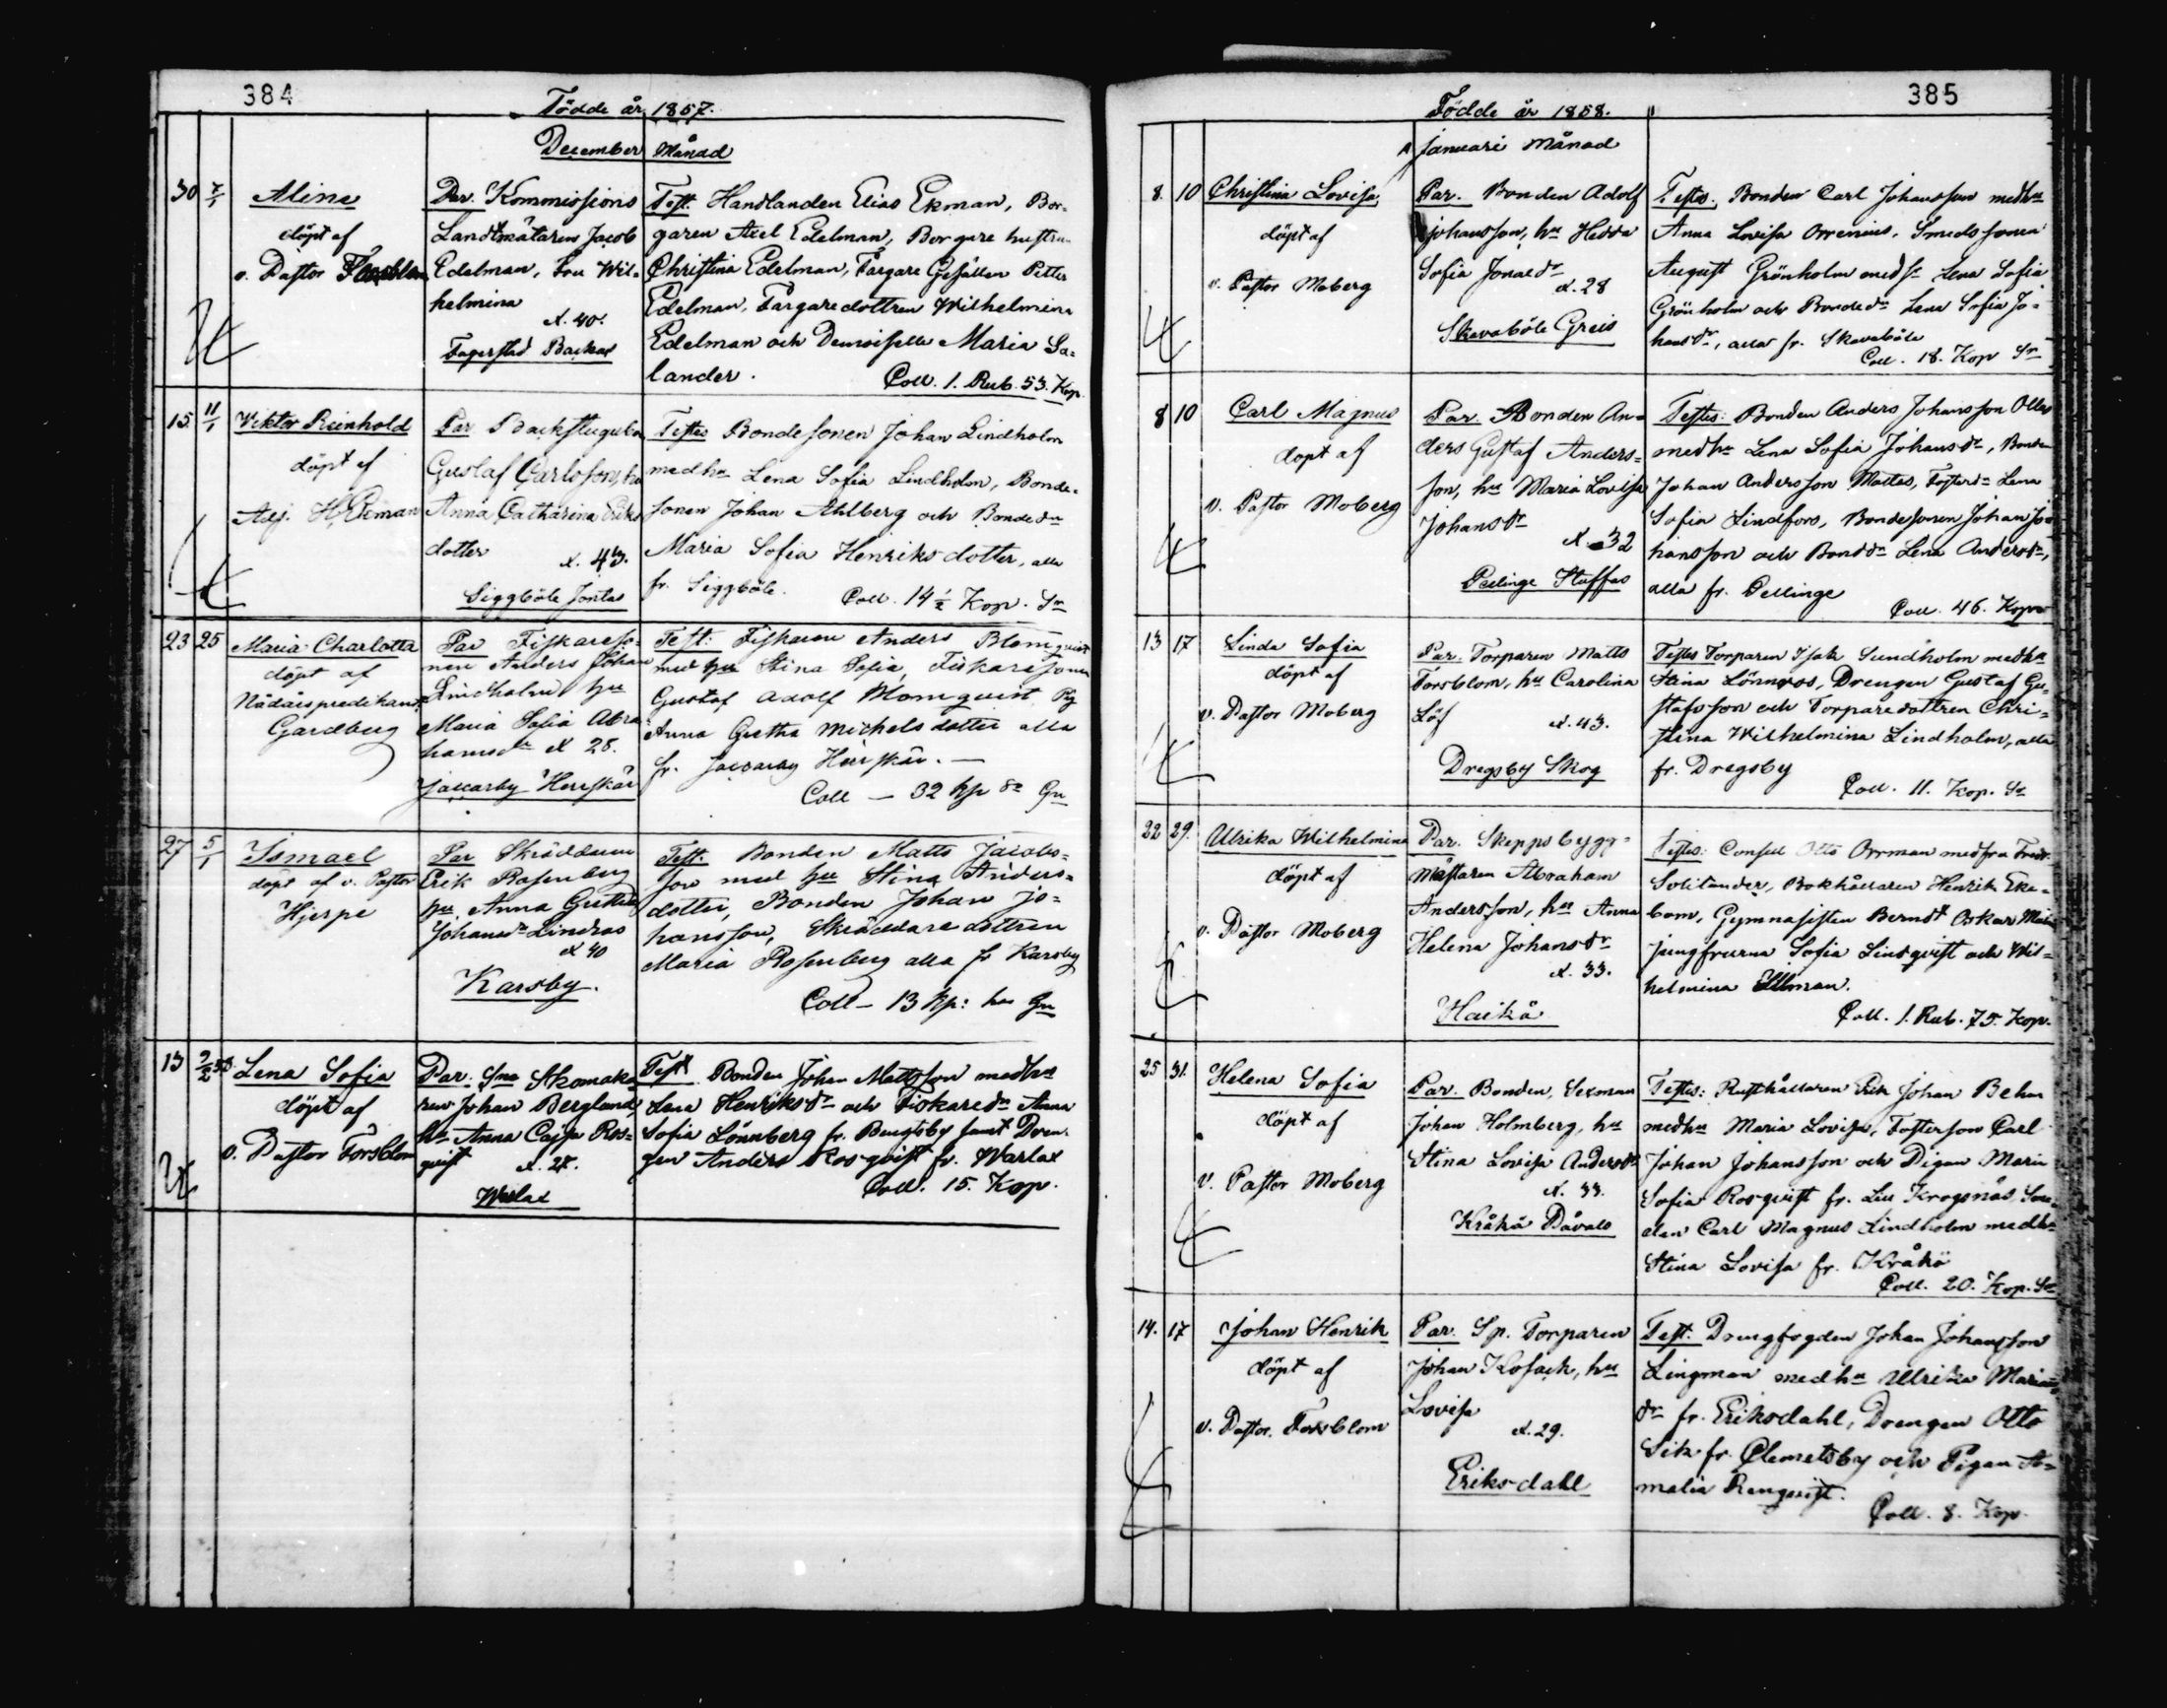 384
Födde år 1857.
December Månad
30 7/1
Aline
döpt af
v. Pastor Forsblom
Par. Kommissions
Landtmätaren Jacob
Edelman, Fru Wil=
helmina
æt. 40.
Fagerstad Backas
Test. Handlanden Elias Ekman, Bor=
garen Axel Edelman, Borgare hustru
Christina Edelman, Färgare Gesällen Petter
Edelman, Färgaredottren Wilhelmina
Edelman och Demoiselle Maria Sa=
lander.
Coll. 1. Rub. 53. Kop.
15. 11/1
Viktor Reinhold
döpt af
Adj. H. Ekman
Par Backstugukarl
Gustaf Carlsson, hu
Anna Catharina Eriks
dotter
æt. 43.
Siggböle Jontas
Testes Bondesonen Johan Lindholm
med hu Lena Sofia Lindholm, Bonde=
sonen Johan Ahlberg och Bondedr
Maria Sofia Henriksdotter, alla
fr. Siggböle.
Coll. 14 1/2 Kop. Sr
23 25
Maria Charlotta
döpt af
Nådårspredikant
Gardberg
Par Fiskareso=
nen Anders Johan
Lindholm hu
Maria Sofia Abra=
hamsdr æt 28.
Jackarby Herrskär
Test: Fiskaren Anders Blomqvist
med hu Stina Sofia, Fiskaresonen
Gustaf Adolf Blomqvist Pig
Anna Gretha Michelsdotter alla
fr. Jackarby Herrskär. —
Coll — 32 kp Sr
27 5/1
Ismael
döpt af v. Pastor
Hjerpe
Par Skräddaren
Erik Rosenberg
hu Anna Gretha
Johansdr Lindros
æt 40
Karsby.
Test. Bonden Matts Jacobs=
son med hu Stina Anders=
dotter, Bonden Johan Jo=
hansson, Skräddaredottren
Maria Rosenberg alla fr Karsby
Coll — 13 kp:
13 2/2 58
Lena Sofia
döpt af
v. Pastor Forsblom
Par: Sne Skomaka=
ren Johan Berglund
hu Anna Cajsa Ros=
qvist
æt. 27.
Warlax
Test Bonden Johan Mattsson med hu
Lena Henriksdr och Fiskaredr Anna
Sofia Lönnberg fr. Bengtsby samt Dren=
gen Anders Rosqvist fr. Warlax
Coll. 15. Kop.
385
Födde år 1858.
Januari Månad
8. 10
Christina Lovisa
döpt af
v. Pastor Moberg
Par. Bonden Adolf
Johansson, hu Hedda
Sofia Jonaedr
æt. 28
Skavaböle Greis
Testes. Bonden Carl Johansson med hu
Anna Lovisa Orrenius, Smedssonen
August Grönholm med sr Lena Sofia
Grönholm och Bondedr Lena Sofia Jo=
hansdr, alla fr. Skavaböle
Coll. 18. Kop Sr
8 10
Carl Magnus
döpt af
v. Pastor Moberg
Par. Bonden An=
ders Gustaf Anders=
son, hu Maria Lovisa
Johansdr
æt. 32
Pellinge Staffas
Testes: Bonden Anders Johansson Olles
med hu Lena Sofia Johansdr, Bonden
Johan Andersson Mattas, Fosterdr Lena
Sofia Lindfors, Bondesonen Johan Jo=
hansson och Bonddr Lena Andersdr,
alla fr. Pellinge
Coll. 46. Kop
13 17
Linda Sofia
döpt af
v. Pastor Moberg
Par. Torparen Matts
Forsblom, hu Carolina
Löf
æt. 43.
Dregsby Skog
Testes Torparen Isak Sundholm med hu
Stina Lönnros, Drengen Gustaf Gu=
stafsson och Torparedottren Chri=
stina Wilhelmina Lindholm, alla
fr. Dregsby
Coll. 11. Kop. Sr
22 29.
Ulrika Wilhelmina
döpt af
v. Pastor Moberg
Par. Skeppsbygg=
mästaren Abraham
Andersson, hu Anna
Helena Johansdr
æt. 33.
Haikå
Testes: Consul Otto Orrman med fru Fredr.
Solitander, Bokhållaren Henrik Eke=
bom, Gymnasisten Berndt Oskar
jungfrurna Sofia Lindqvist och Wil=
helmina Ullman.
Coll. 1. Rub. 75. Kop.
25 31.
Helena Sofia
döpt af
v. Pastor Moberg
Par. Bonden, Sexman
Johan Holmberg, hu
Stina Lovisa Andersdr
æt. 33.
Kråkö Dåvals
Testes: Rusthållaren Erik Johan Behm
med hu Maria Lovisa, Fosterson Carl
Johan Johansson och Pigan Maria
Sofia Rosqvist fr. Lill Krogsnäs, Sme=
den Carl Magnus Lindholm med hu
Stina Lovisa fr. Kråkö
Coll. 20. Kop. Sr
14. 17
Johan Henrik
döpt af
v. Pastor. Forsblom
Par. Sp. Torparen
Johan Kosack, hu
Lovisa
æt. 29.
Eriksdahl
Test. Drengfogden Johan Johansson
Lingman med hu Ulrika Mariæ
dr fr. Eriksdahl, Drengen Otto
Sik fr. Clemetsby och Pigan A=
malia Renqvist.
Coll. 8. Kop.